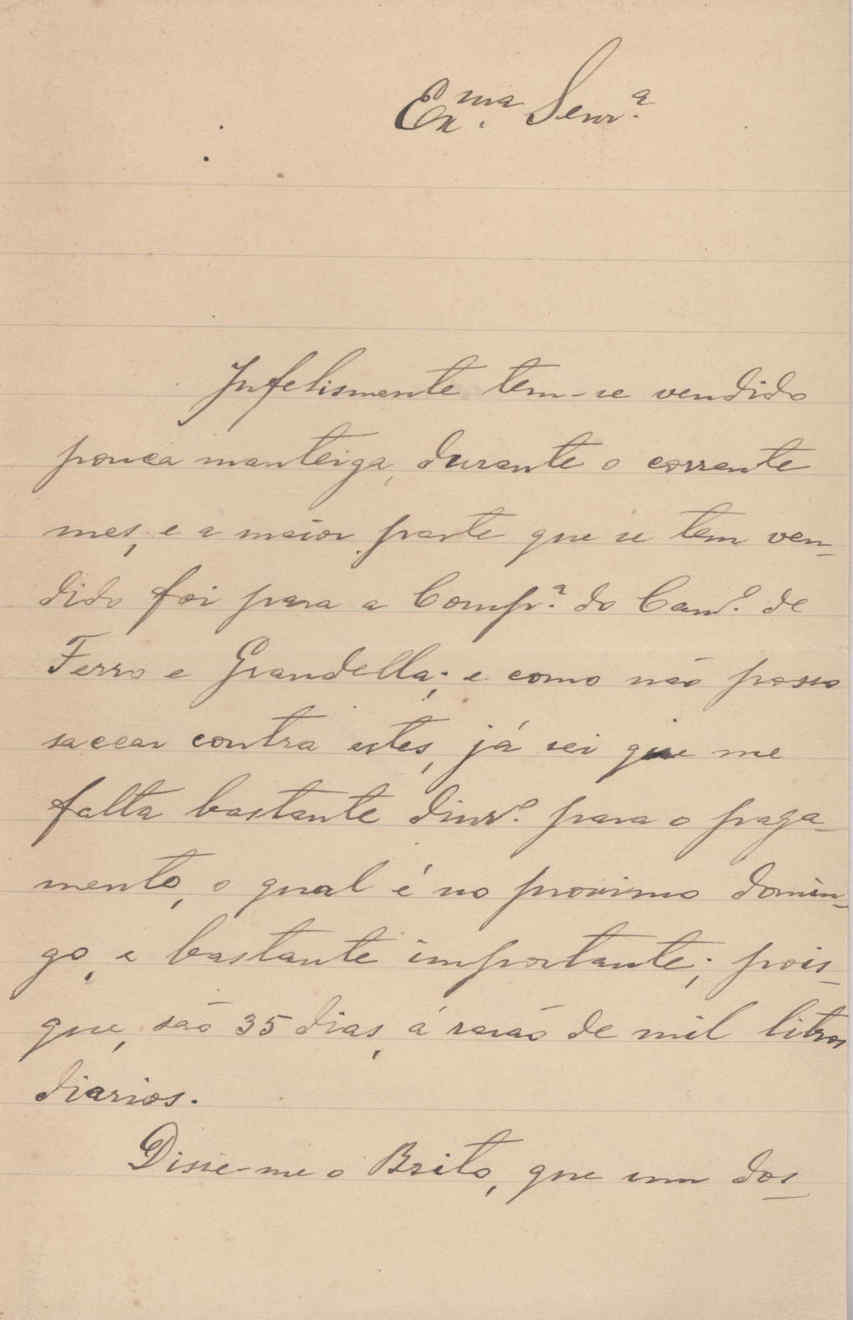 Ex.ma Senr.a
Infelismente tem-se vendido
pouca manteiga, durante o corrente
mes, e a maior parte que se tem ven-
dido foi para a Comp.a do Cam.o de
Ferro e Grandella; e como não posso
saccar contra estes, já sei que me
falta bastante dinr.o para o paga-
mento, o qual é no proximo domin-
go, e bastante importante; pois-
que, são 35 dias, á rasão de mil litros
diarios.
Disse-me o Brito, que um dos